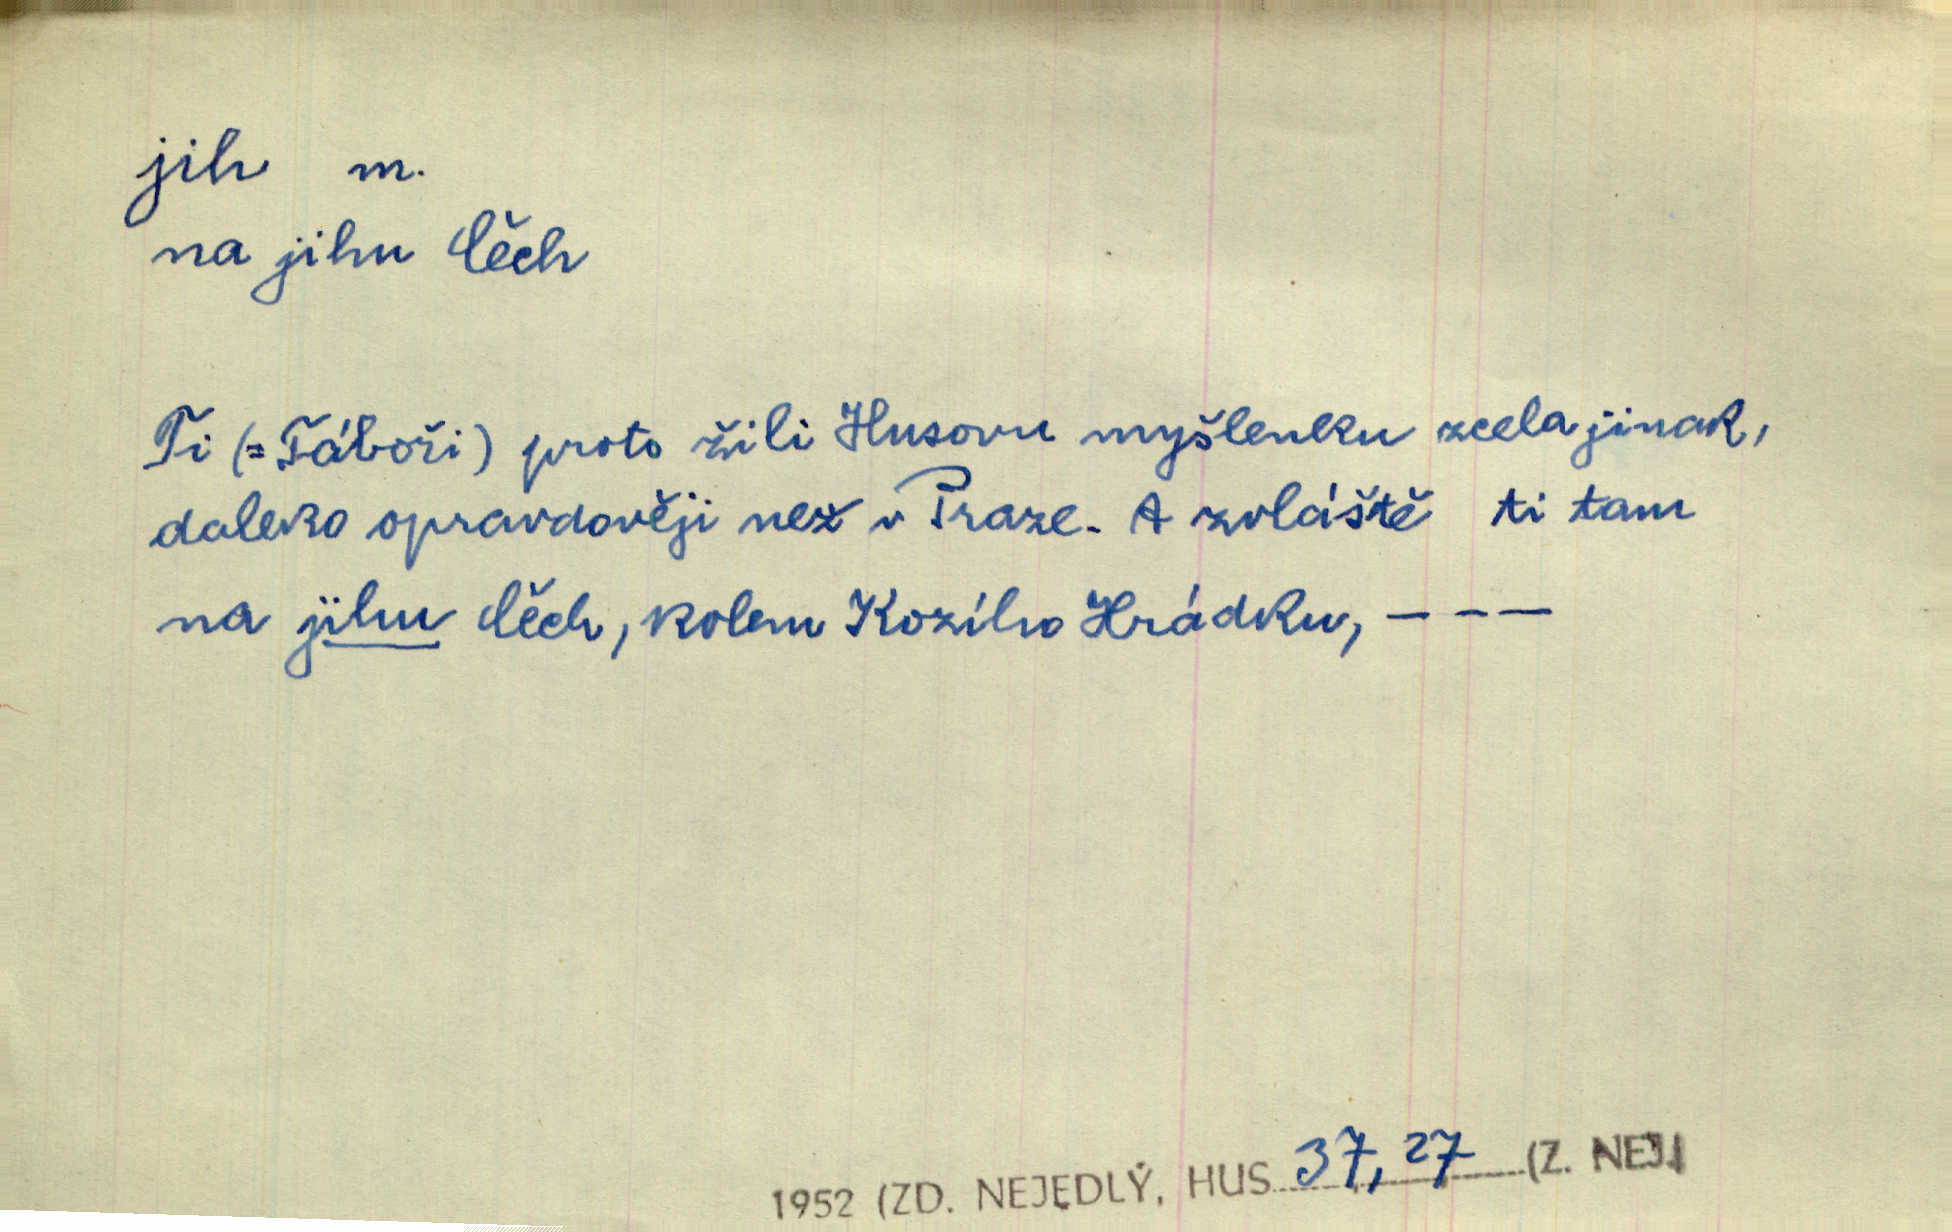 jih m.
na jihu Čech
Ti (= Táboři) proto žili Husovu myšlenku zcela jinak,
daleko opravdověji než v Praze. A zvláště ti tam
na jihu Čech, kolem Kozího Hrádku, – – –
1952 (ZD. NEJEDLÝ, HUS 37, 27 (Z. NEJ.)